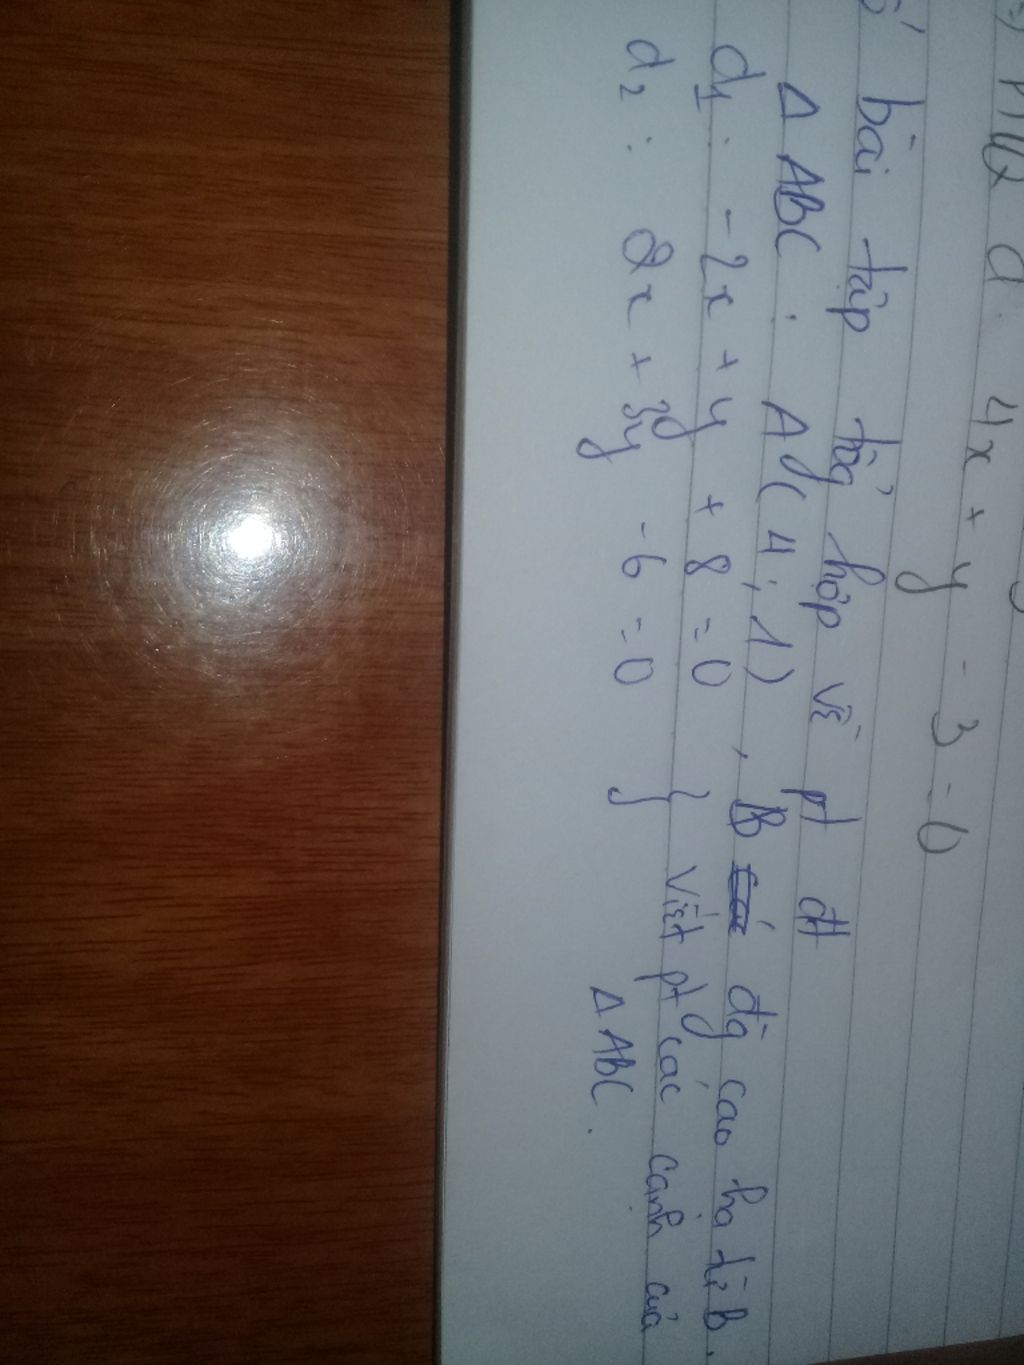 d: 4x + y - 3 = 0
bài tập tổg hợp về pt đt
Δ ABC: A(4; 1), B đg cao hạ từ B.
d1: -2x + y + 8 = 0
d2: 2x + 3y - 6 = 0 } Viết pt các cạnh của
Δ ABC.